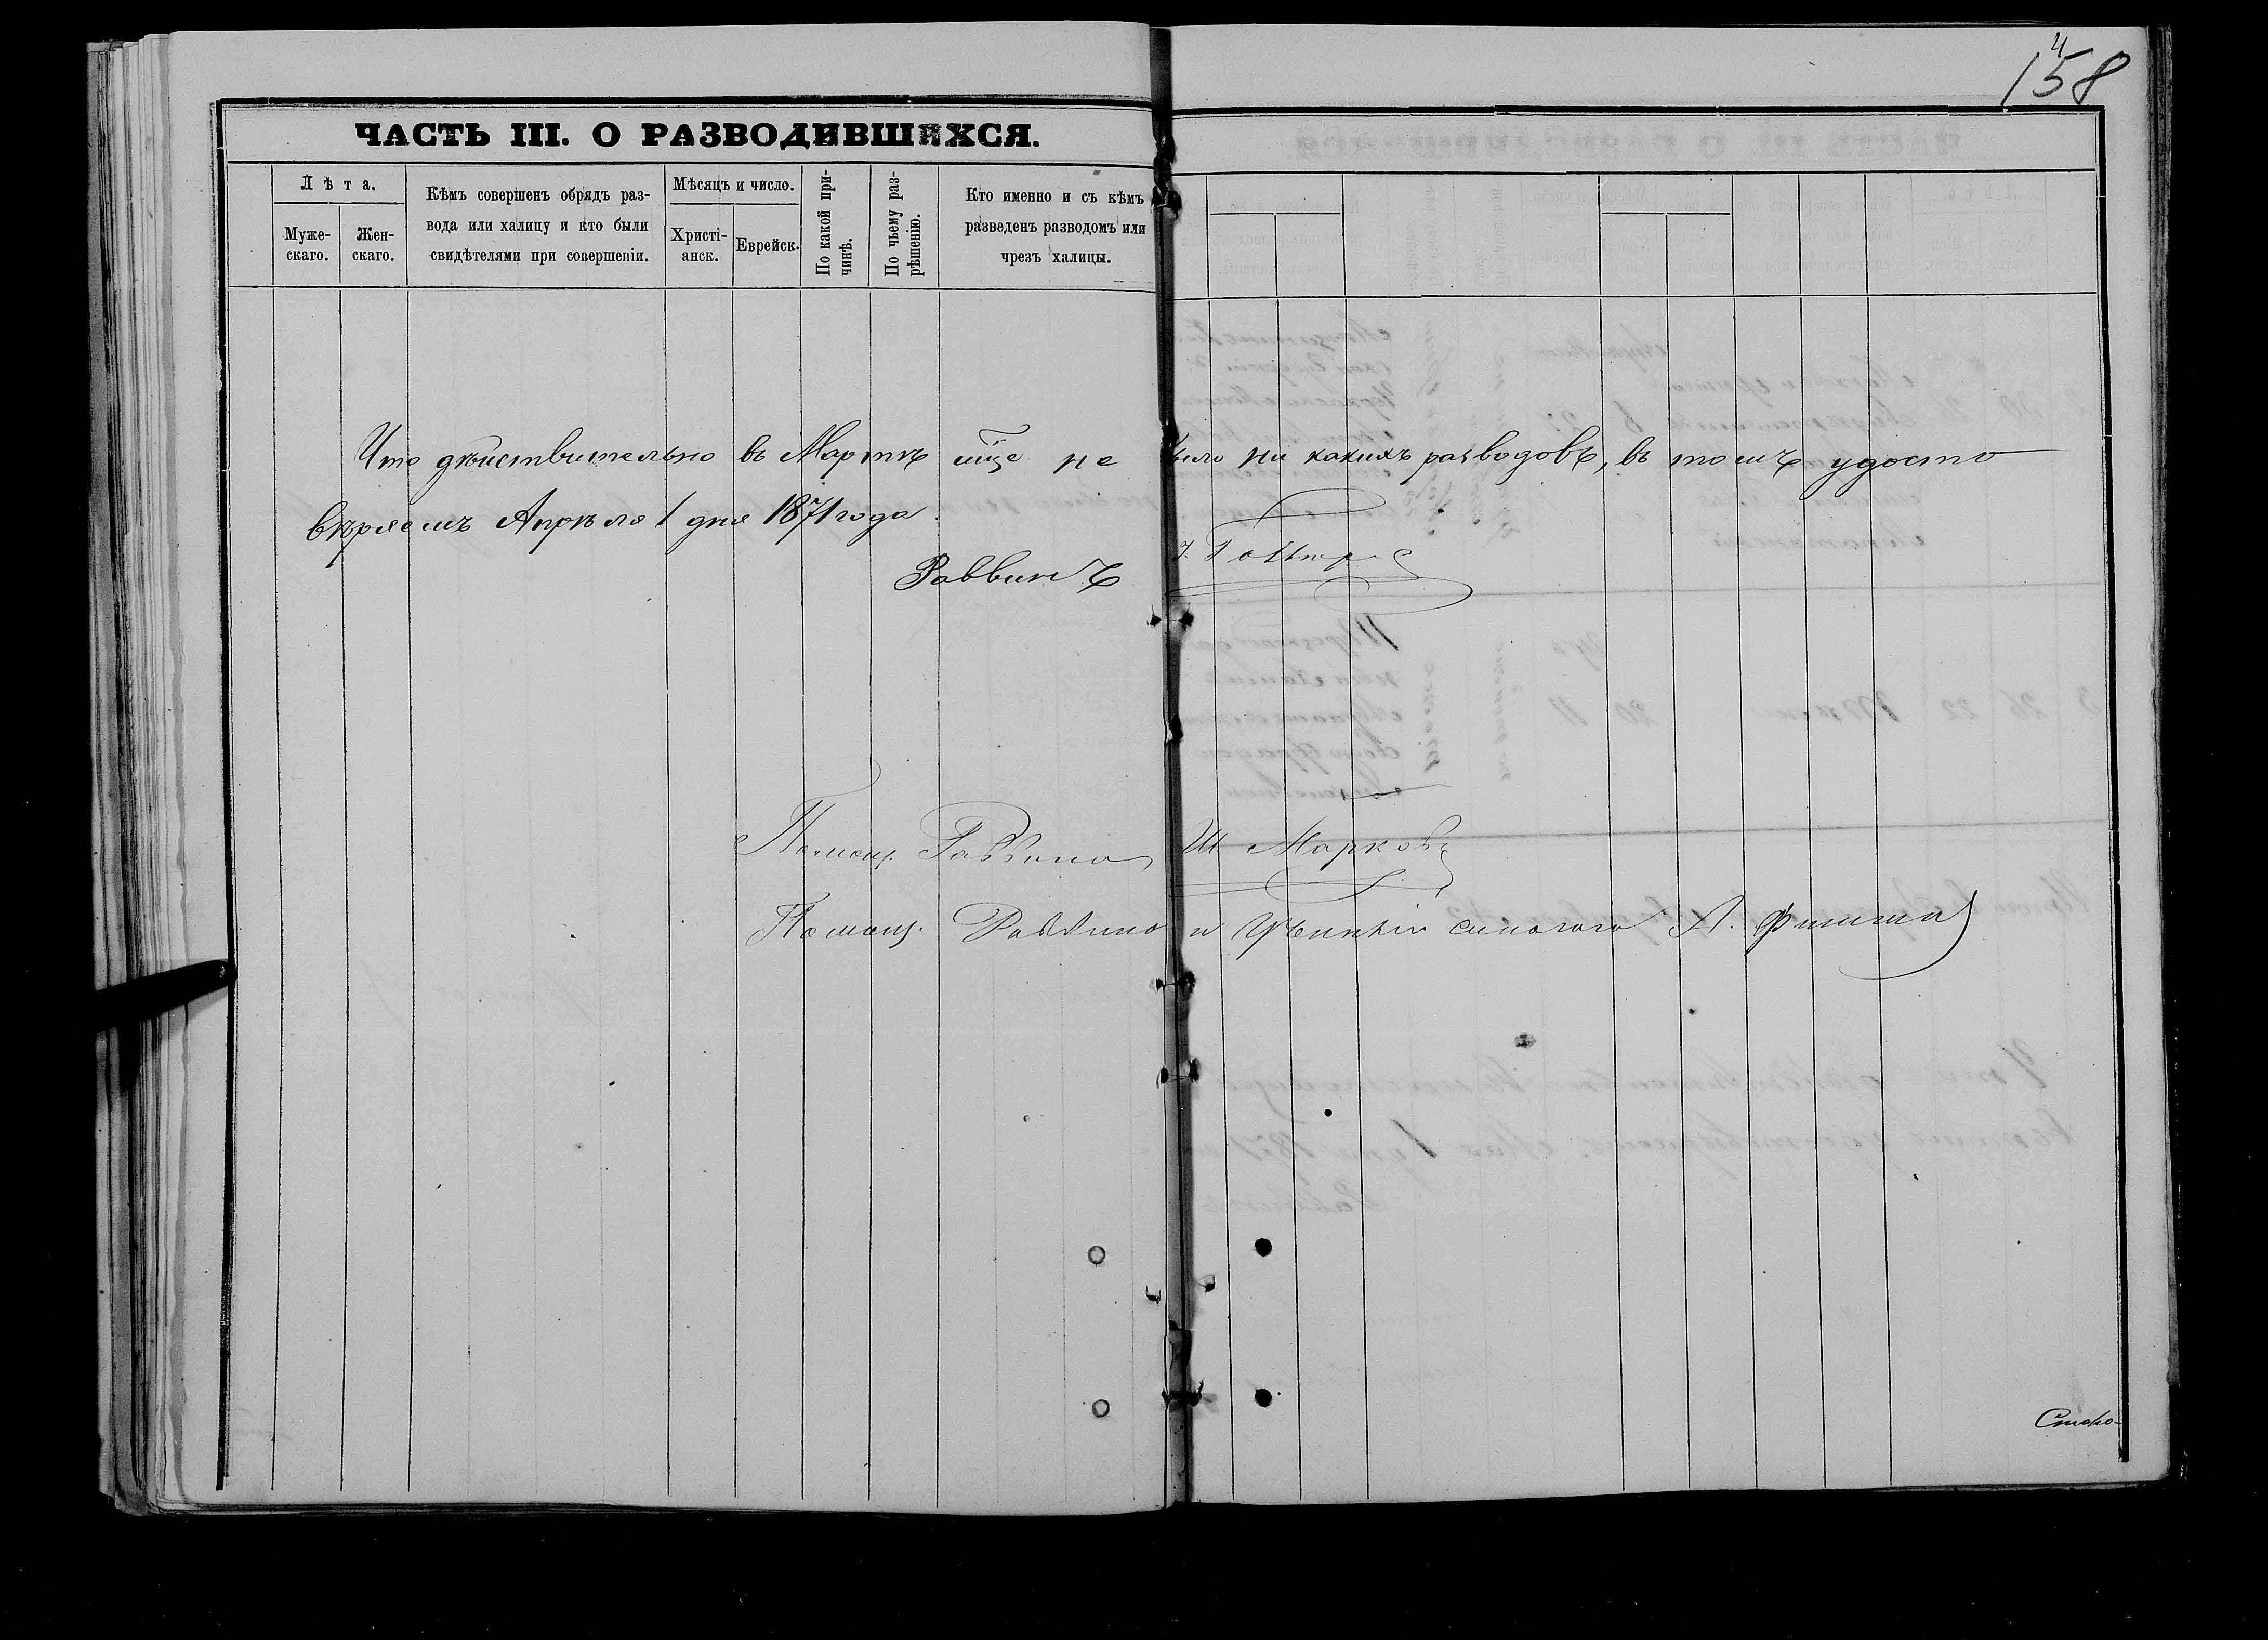 158
4
ЧАСТЬ III. О РАЗВОДИВШИХСЯ.
Лѣта.
Муже-
скаго.
Жен-
скаго.
Кѣмъ совершенъ обрядъ раз-
вода или халицу и кто были
свидѣтелями при совершеніи.
Мѣсяцъ и число.
Христі-
анск.
Еврейск.
По какой при-
чинѣ.
По чьему раз-
рѣшенію.
Кто именно и съ кѣмъ
разведенъ разводомъ или
чрезъ халицы.
Что дѣйствительно въ Мартѣ не было ни какихъ разводовъ, въ томъ удосто
вѣряемъ Апрѣля 1 дня 1871 года
Раввинъ
Помощ. Раввина Ш Марковъ
Помощ. Раввина и синагога